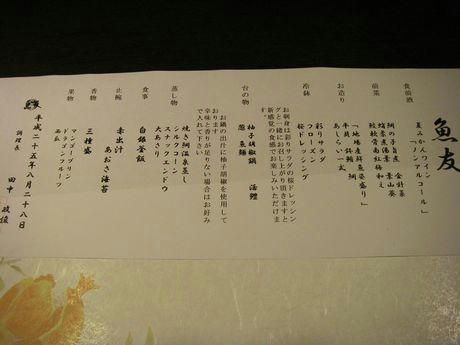 魚友
食前酒
夏みかんワイン
「ノンアルコール」
前菜
鯛の子旨煮
お造り
「地場産鮮魚姿盛り」
平貝 鮪 鯛
あしらい一式
冷鉢
彩りサラダ
フローズン
桜ドレッシング
お刺身は彩りサラダの桜ドレッシン
グと一緒にお召し上がり頂きますと
新感覚の食感でお楽しみいただけま
す。
台の物
柚子胡椒鍋 活鱧
葱 魚麺
お鍋の出汁に柚子胡椒を使用して
おります
辛味と香りが足りない場合はお好み
で入れて下さい
蒸し物
焼き鯛温泉蒸し
シルクコーン
スナックエンドウ
大あさり
食事
白銀釜飯
止椀
赤出汁
あおさ海苔
香物
三種盛
果物
マンゴープリン
ドラゴンフルーツ
西瓜
平成二十五年八月二十八日
調理長
田中